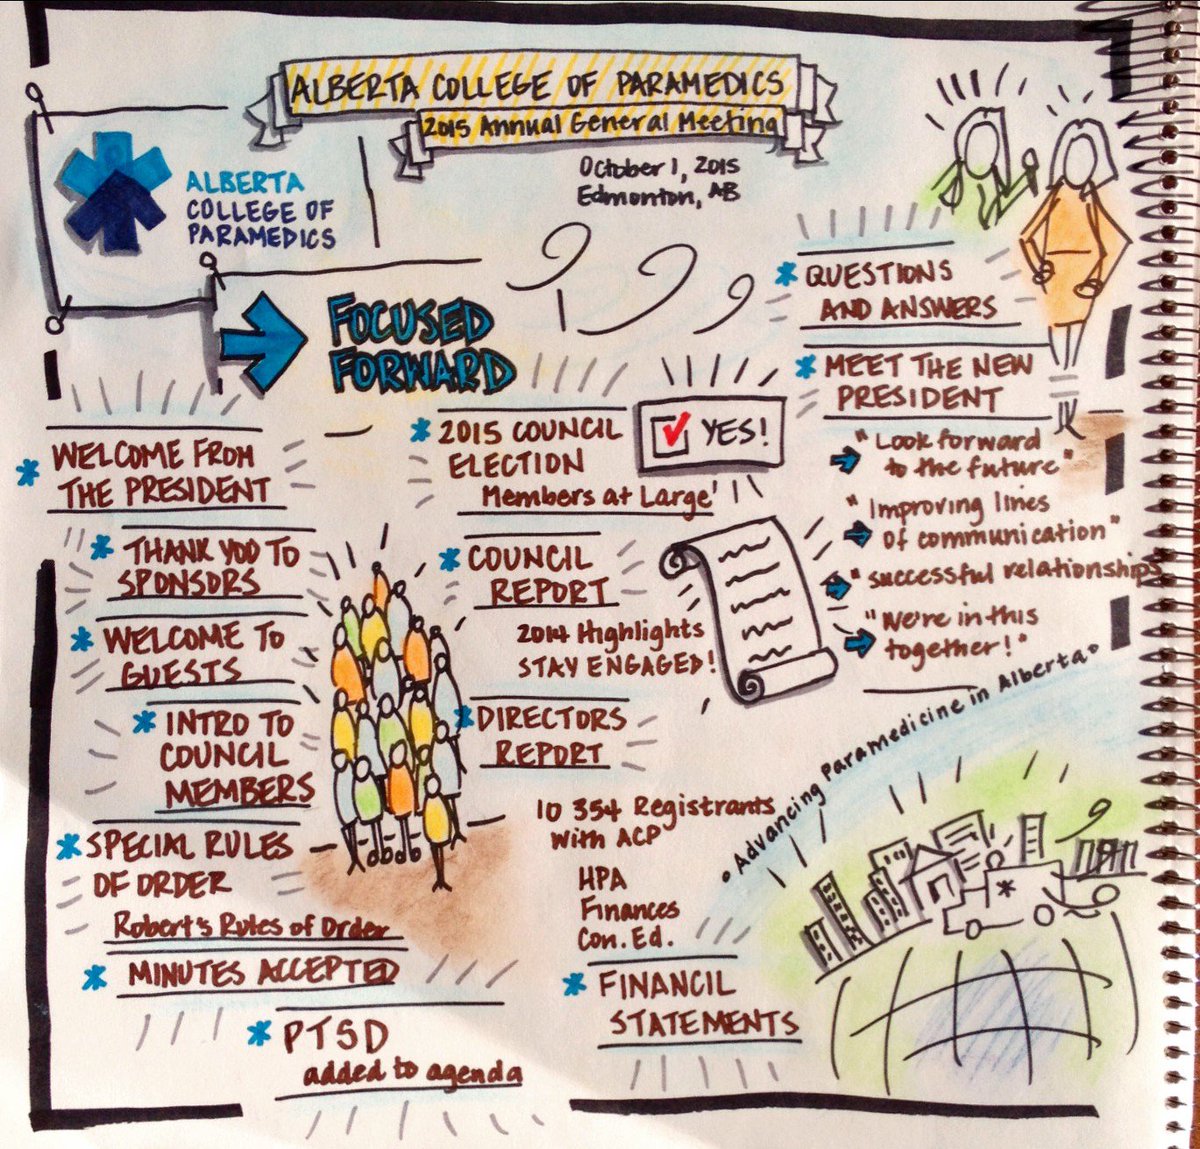 ALBERTA COLLEGE OF PARAMEDICS
2015 Annual General Meeting
October 1, 2015
Edmonton, AB
ALBERTA
COLLEGE OF
PARAMEDICS
FOCUSED
FORWARD
WELCOME FROM
THE PRESIDENT
THANK YOU TO
SPONSORS
WELCOME TO
GUESTS
INTRO TO
COUNCIL
MEMBERS
SPECIAL RULES
OF ORDER
Robert's Rules of Order
MINUTES ACCEPTED
PTSD
added to agenda
2015 COUNCIL
ELECTION
Members at Large'
YES!
COUNCIL
REPORT
2014 Highlights
STAY ENGAGED!
DIRECTORS
REPORT
10 354 Registrants
with ACP
HPA
Finances
Con. Ed.
FINANCIL
STATEMENTS
QUESTIONS
AND ANSWERS
MEET THE NEW
PRESIDENT
"Look forward
to the future"
"Improving lines
of communication"
"successful relationships
"We're in this
together!"
• Advancing Paramedicine in Alberta •